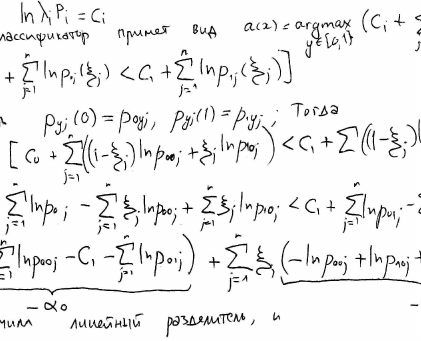 ln λᵢPᵢ = Cᵢ
лассификатор примет вид a(x) = argmax_{y∈{0,1}} (Cᵢ +
+ ∑_{j=1}^{n} ln p₁ⱼ(ξⱼ) < C₁ + ∑_{j=1}^{n} ln p₁ⱼ(ξⱼ)]
p_{yj}(0) = p_{0yj}, p_{yj}(1) = p_{1yj}; Тогда
[C₀ + ∑_{j=1}^{n} ((1-ξⱼ) ln p_{00j} + ξⱼ ln p_{10j}) < C₁ + ∑ ((1-ξⱼ)
∑_{j=1}^{n} ln p_{0 j} - ∑_{j=1}^{n} ξⱼ ln p_{00j} + ∑_{j=1}^{n} ξⱼ ln p_{10j} < C₁ + ∑_{j=1}^{n} ln p_{01j} -
∑_{j=1}^{n} ln p_{00j} - C₁ - ∑_{j=1}^{n} ln p_{01j}) + ∑_{j=1}^{n} ξⱼ (-ln p_{00j} + ln p_{10j} +
-α₀ -
чили линейный разделитель, и